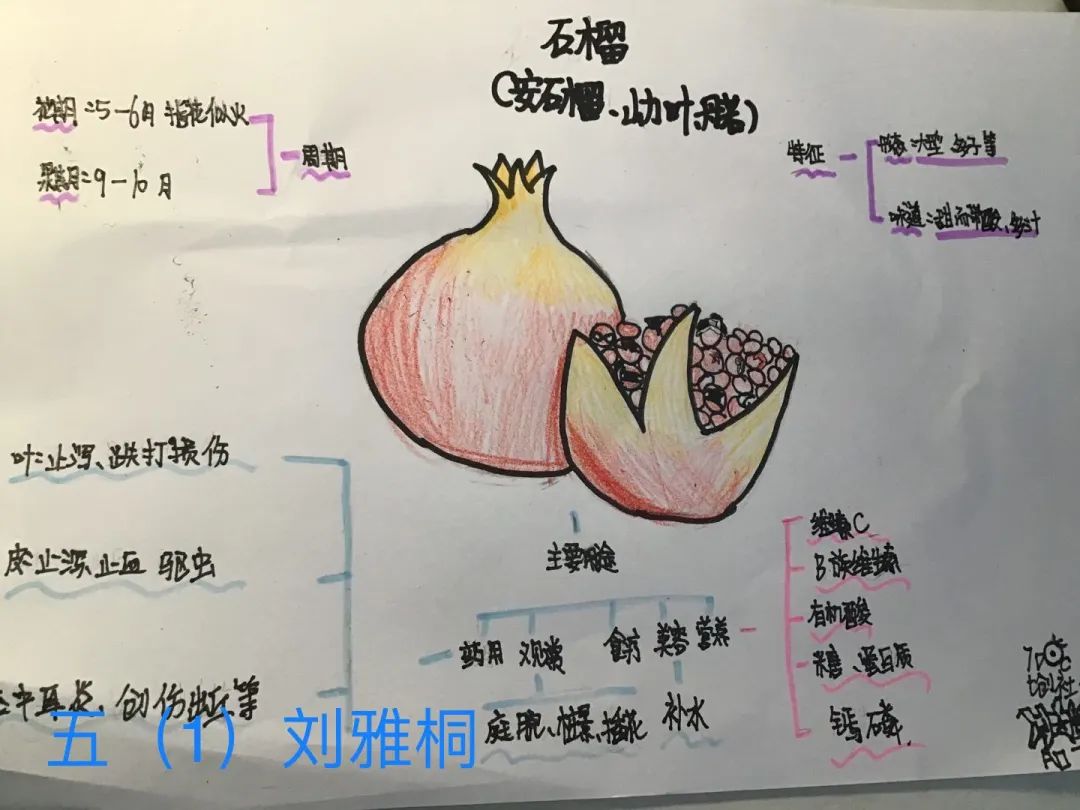 石榴
(安石榴、山力叶、丹若)
花期:5-6月 榴花似火
果期:9-10月
周期
特征
大型 多子等
味道:甜而带酸、多汁
叶:止泻、跌打损伤
皮 止泻、止血 驱虫
中耳炎、创伤出血等
主要用途
药用 观赏 食疗 美容 营养
庭院、
补水
维生素C
B族维生素
有机酸
糖、蛋白质
钙
五（1）刘雅桐